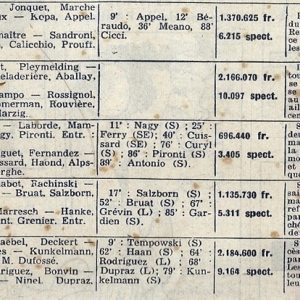 Jonquet, Marche
— Kepa, Appel.
Sandroni,
Calicchio, Prouff.
9' : Appel, 12' Bé-
raudo, 36' Meano, 88'
Cicci.
1.370.625 fr.
6.215 spect.
Pleymelding —
Aballay,
Rossignol,
Rouvière,
2.166.070 fr.
10.097 spect.
Laforde, Mam-
Pironti. Entr. :
Fernandez —
Haond, Alps-
11' : Nagy (S) ; 25' :
Ferry (SE) ; 40' : Cuis-
sard (SE) ; 76' : Curyl
(S) ; 86' : Pironti (S)
89' : Antonio (S).
696.440 fr.
3.405 spect.
Rachinski —
— Bruat. Salzborn,
— Hanke,
Grenier. Entr.
17' : Salzborn (S) ;
52' : Bruat (S) ; 67' :
Grévin (L) ; 85' : Gar-
dien (S).
1.135.730 fr.
5.311 spect.
Deckert —
— Kunkelmann,
M. Dufossé.
Bonvin —
— Ninel. Dupraz.
9' : Tempowski (S)
62' : Haan (S) ; 64' :
Rodriguez (L) ; 68' :
Dupraz (L) ; 79' : Kun-
kelmann (S).
2.184.600 fr.
9.164 spect.